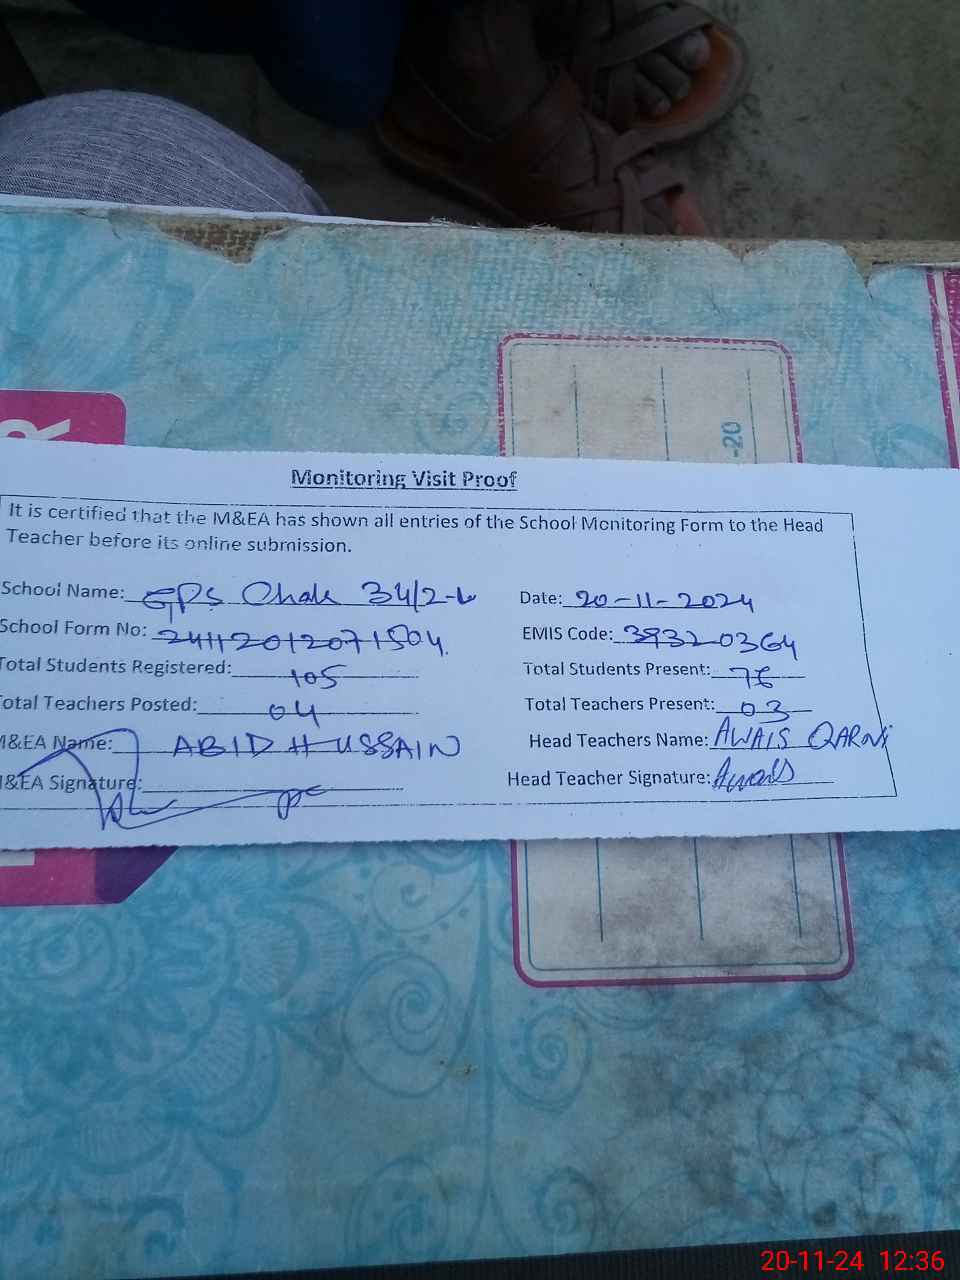 R
-20
Monitoring Visit Proof
It is certified that the M&EA has shown all entries of the School Monitoring Form to the Head
Teacher before its online submission.
School Name: GPS Chak 34/2-L Date: 20-11-2024
School Form No: 24112012071504. EMIS Code: 39320364
Total Students Registered: 105 Total Students Present: 76
Total Teachers Posted: 04 Total Teachers Present: 03
M&EA Name: ABID HUSSAIN Head Teachers Name: AWAIS QARNI
M&EA Signature: Head Teacher Signature: Awais
20-11-24 12:36